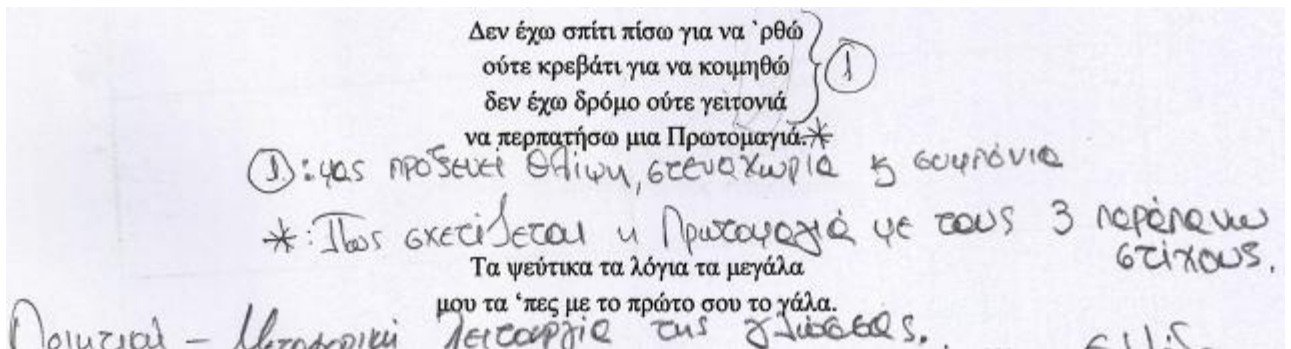 Δεν έχω σπίτι πίσω για να `ρθώ
ούτε κρεβάτι για να κοιμηθώ
δεν έχω δρόμο ούτε γειτονιά
να περπατήσω μια Πρωτομαγιά.*
1
1: μας προξενεί θλίψη, στεναχώρια
*: Πως σχετίζεται η Πρωτομαγιά με τους 3 παράπανω
στίχους.
Τα ψεύτικα τα λόγια τα μεγάλα
μου τα ‘πες με το πρώτο σου το γάλα.
Ποιητική - Μεταφορική λειτουργία της γλώσσας.